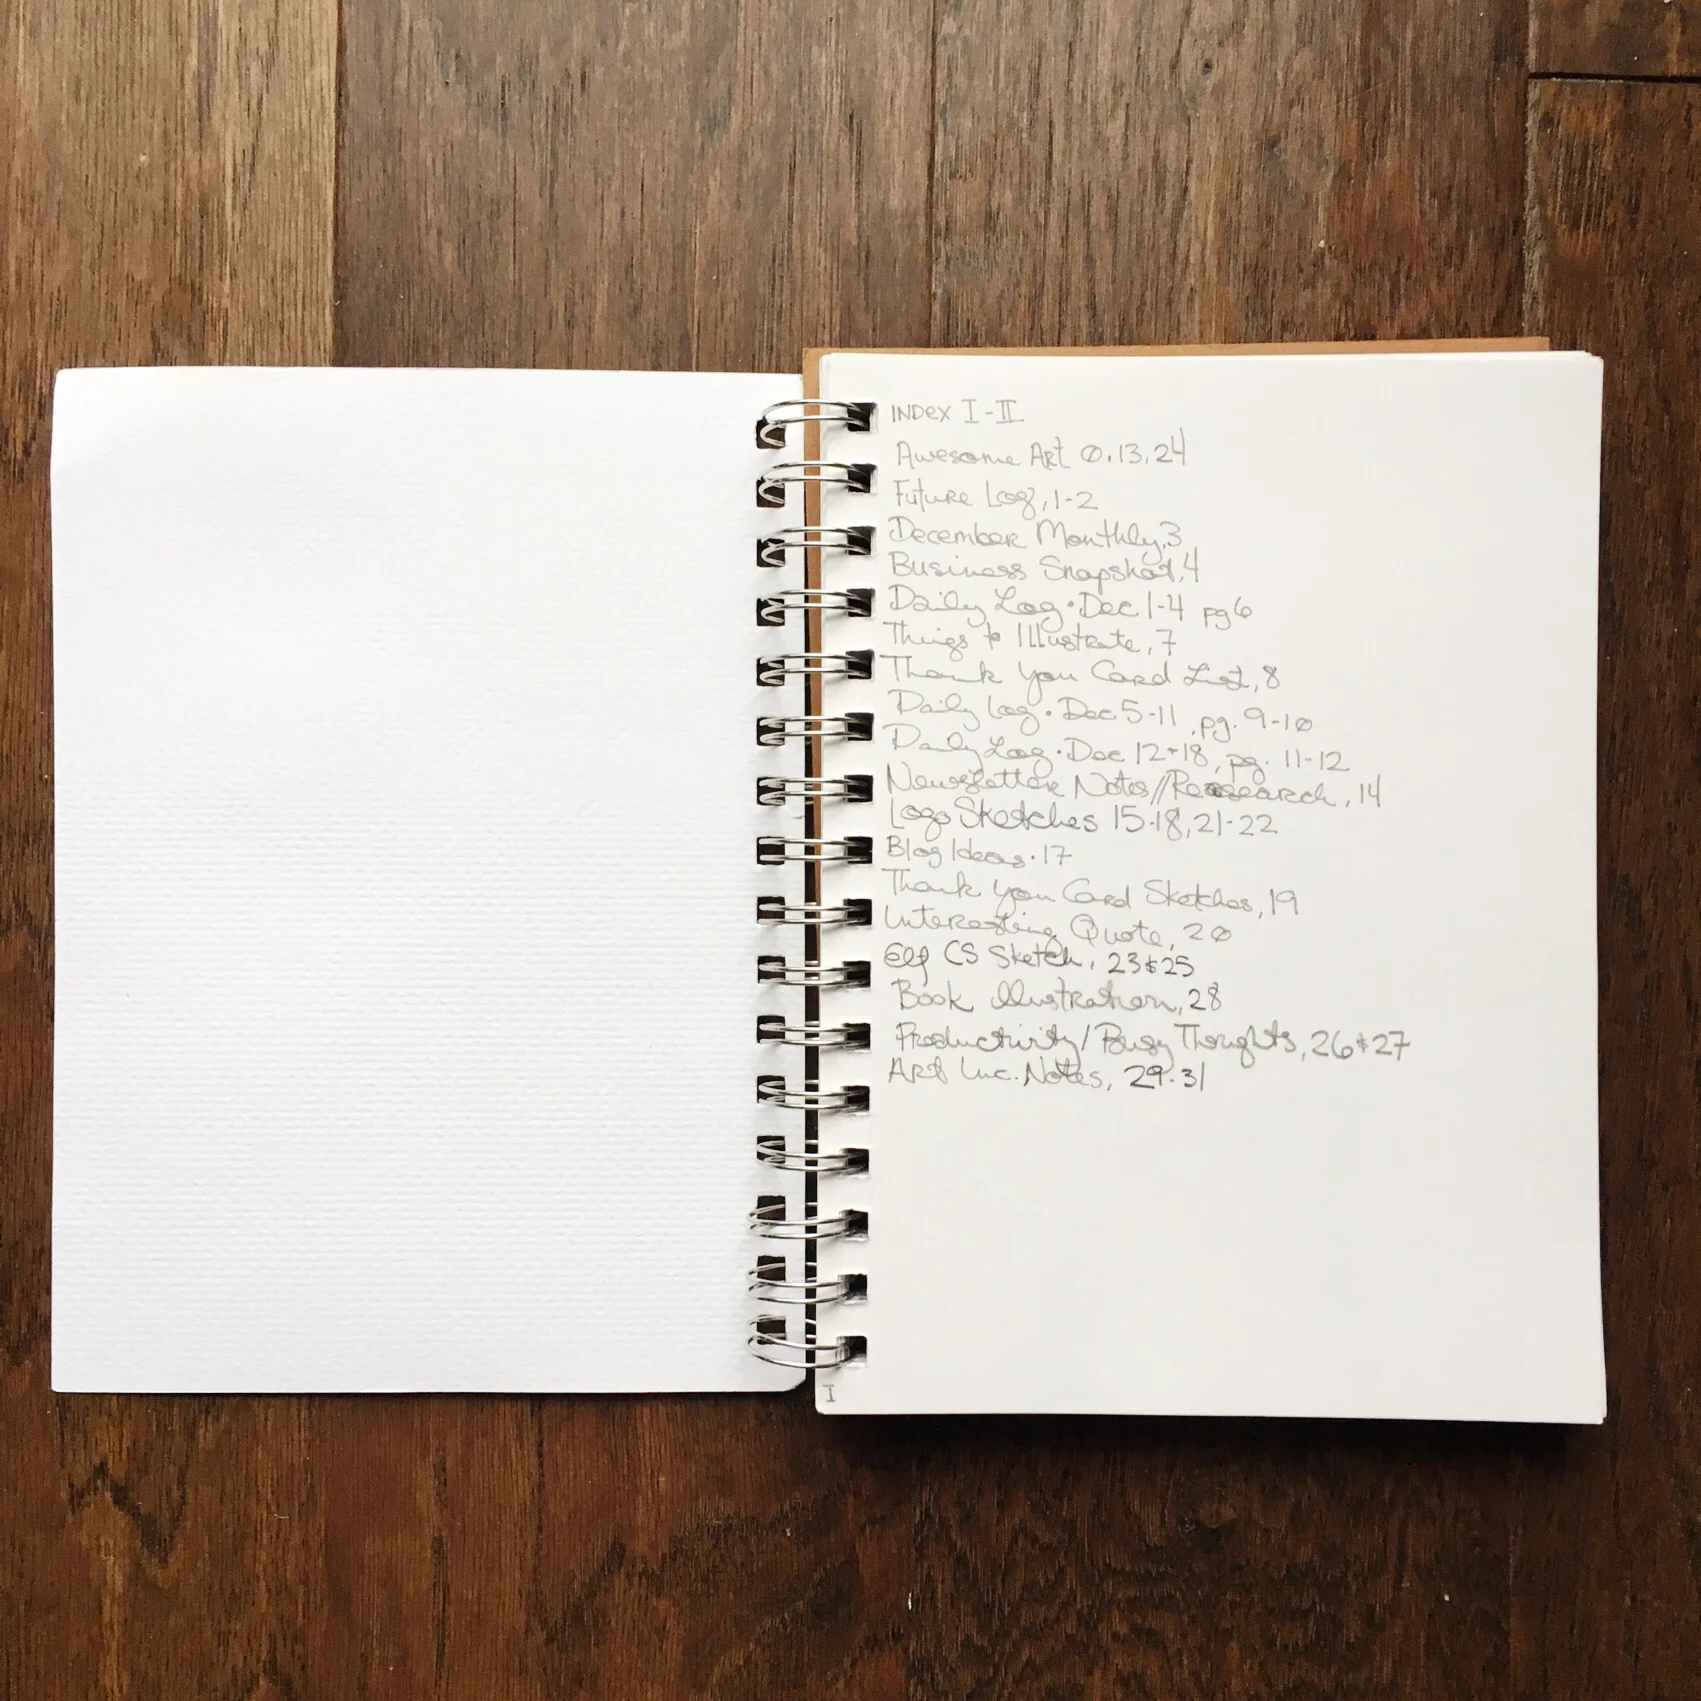 INDEX I-II
Awesome Art 0.13,24
Future Log, 1-2
December Monthly,3
Business Snapshot,4
Daily Log • Dec 1-4 pg 6
Things to Illustrate, 7
Thank you Card List, 8
Daily Log • Dec 5-11, pg. 9-10
Daily Log • Dec 12-18, pg. 11-12
Newsletter Notes//Research, 14
Logo Sketches 15-18, 21-22
Blog Ideas • 17
Thank you Card Sketches, 19
Interesting Quote, 20
Elf CS Sketch, 23 & 25
Book Illustration, 28
Productivity/Busy Thoughts, 26 & 27
Art Inc. Notes, 29-31
I